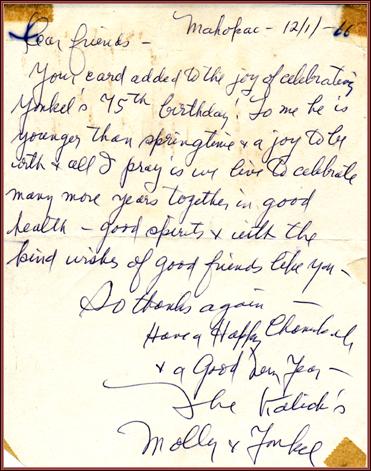 Mahopac - 12/1/-66
Dear friends -
Your card added to the joy of celebrating
Yonkel's 75th birthday! To me he is
younger than springtime & a joy to be
with & all I pray is we live to celebrate
many more years together in good
health - good spirits & with the
kind wishes of good friends like you -
So thanks again -
Have a Happy Chanukah
& a Good New Year -
The
Molly & Yonkel